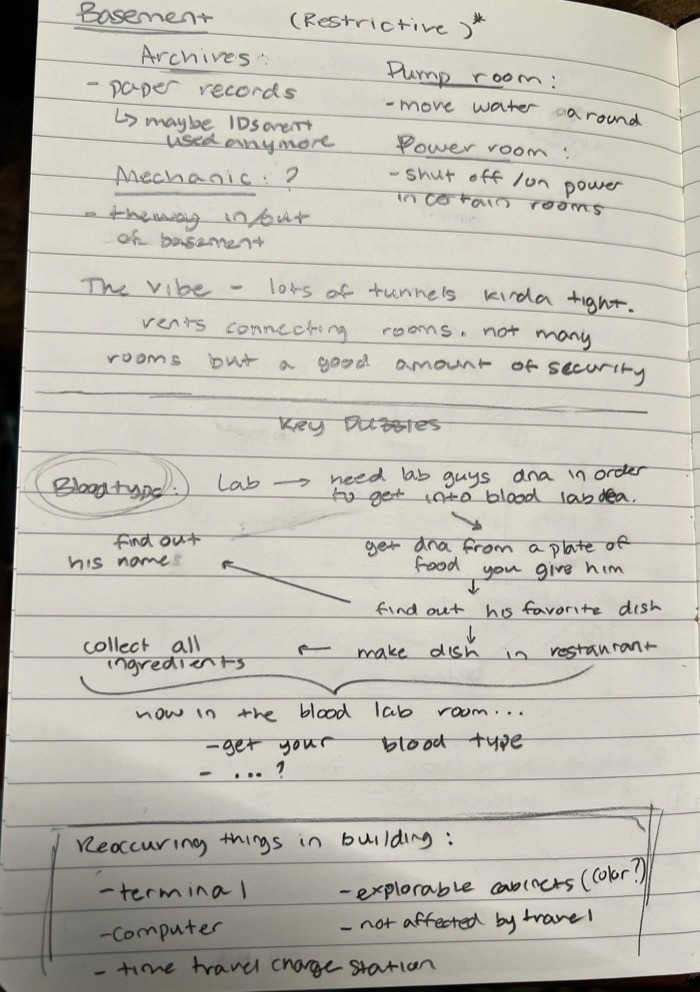 Basement (Restrictive)*
Archives:
- paper records
↳ maybe IDs arent
used anymore
Mechanic: ?
- the way in/out
of basement
Pump room:
- move water around
Power room:
- shut off /on power
in certain rooms
The vibe - lots of tunnels kinda tight.
vents connecting rooms. not many
rooms but a good amount of security
Key Puzzles
Blood type: Lab → need lab guys dna in order
to get into blood lab
get dna from a plate of
food you give him
↓
find out his favorite dish
find out
his name
↓
make dish in restaurant
← collect all
ingredients
now in the blood lab room...
- get your blood type
- ...?
Reoccuring things in building:
- terminal
- computer
- time travel charge station
- explorable cabinets (color?)
- not affected by travel